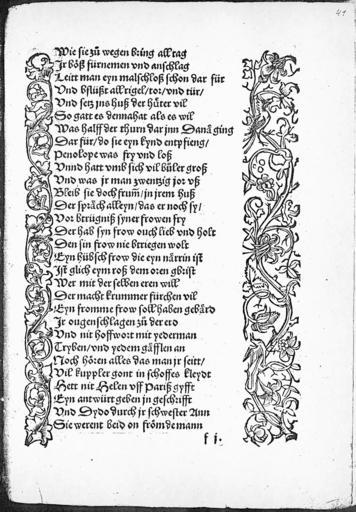 41
Wie sie zů wegen bring all tag
Jr bo̊ß fürnemen vnd anschlag
Leitt man eyn malschloß schon dar für
Vnd bslüßt all rigel/tor/vnd tür/
Vnd setz jns huß der hůter vil
So gatt es dennaht als es wil
Was halff der thurn dar jnn Danä ging
Dar für/do sie eyn kynd entpfieng/
Penolope was fry vnd loß
Vnnd hatt vmb sich vil bůler groß
Vnd was jr man zwentzig jor vß
Bleib sie doch frum̃/jn jrem huß
Der sprǎch alleyn/das er noch sy/
Vor betrügniß syner frowen fry
Der hab syn frow ouch lieb vnd holt
Den sin frow nie btriegen wolt
Eyn hübsch frow die eyn närrin ist
Ist glich eym roß dem oren gbrist
Wer mit der selben eren will
Der macht krummer fürchen vil
Eyn fromme frow soll haben gebärd
Jr ougen schlagen zů der erd
Vnd nit hoffwort mit yederman
Tryben/vnd yedem gäfflen an
Noch hören alles das man jr seitt/
Vil kuppler gont in schoffes kleydt
Hett nit Helen vff Pariß gyfft
Eyn antwürt geben jn geschrifft
Vnd Dydo durch jr schwester Ann
Sie werent beid on frömde mann
f j.